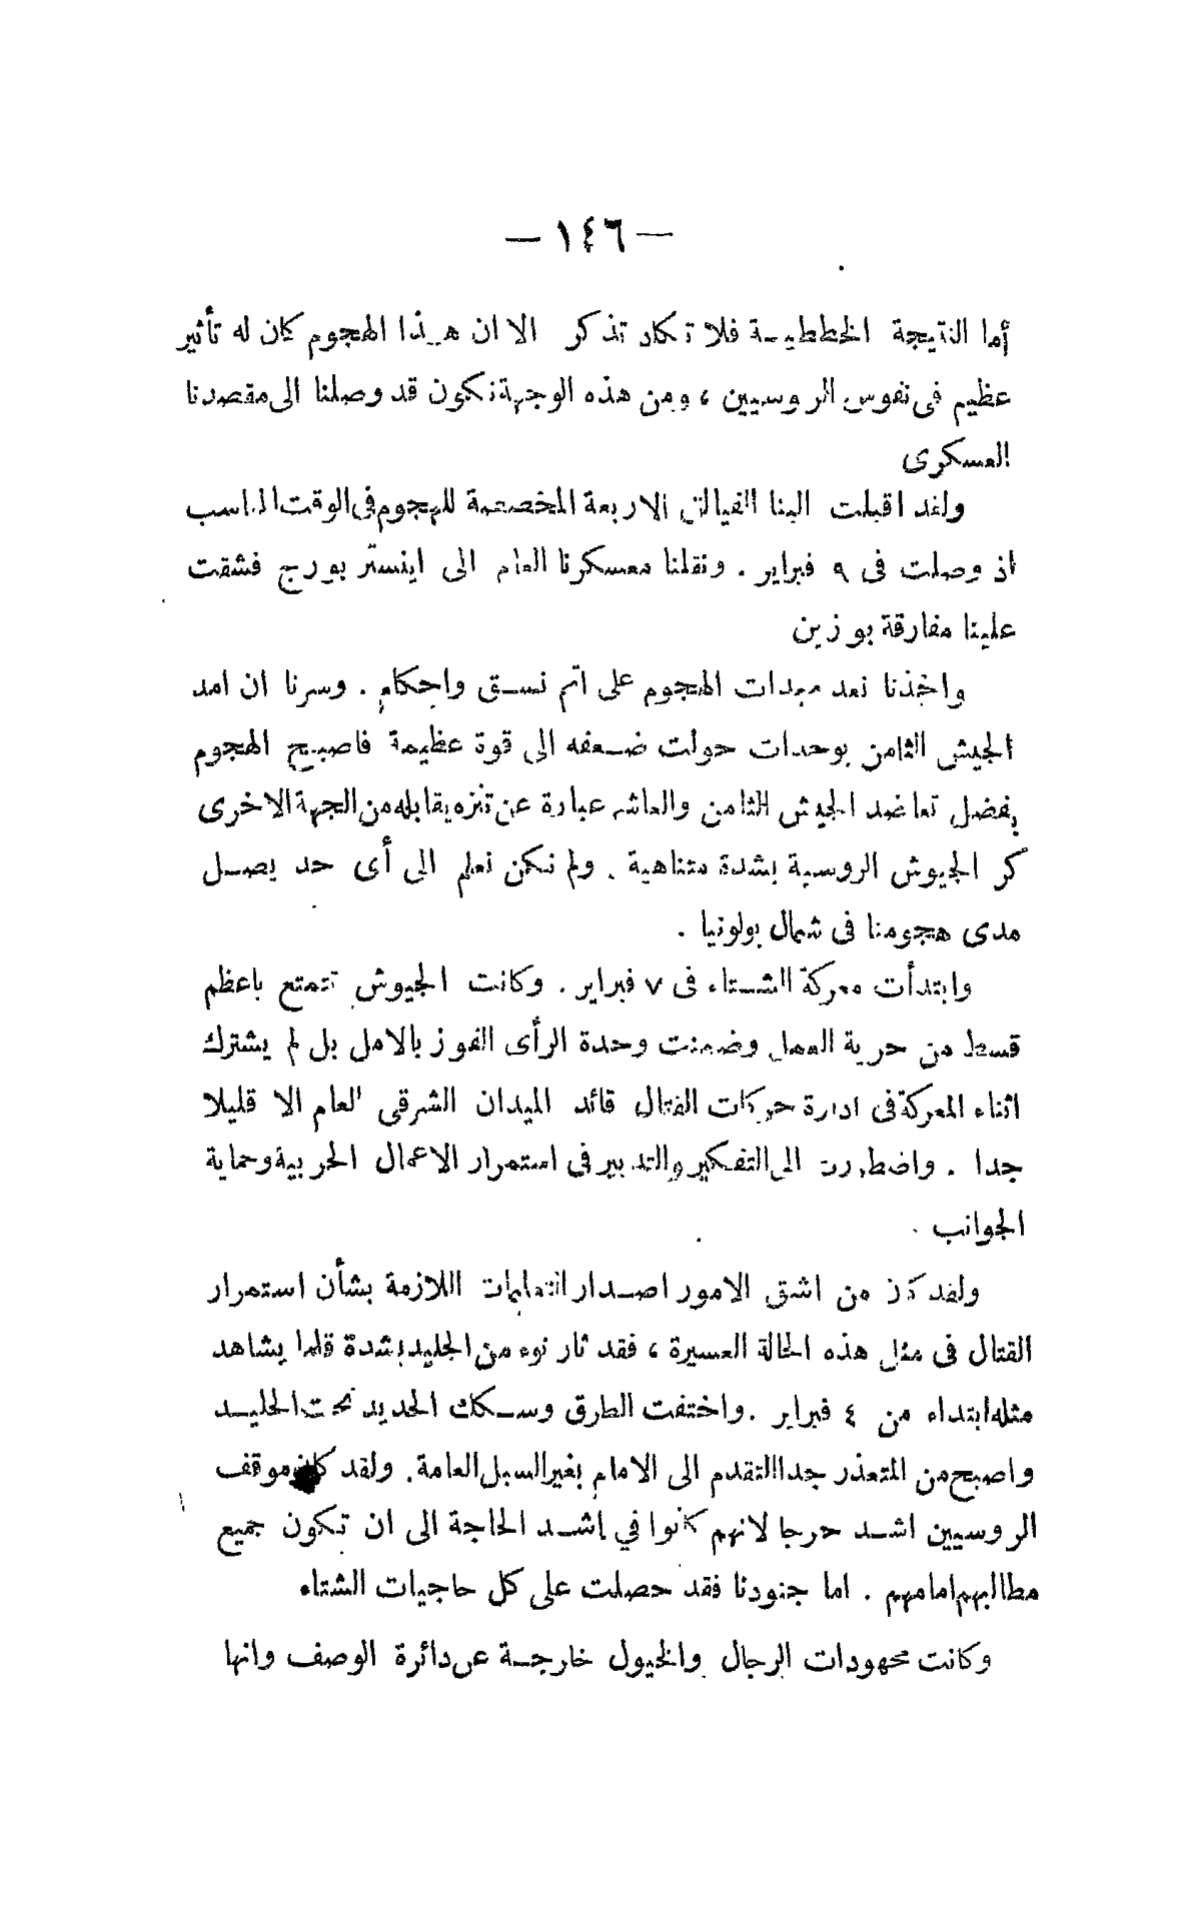 — ١٤٦ —
أما النتيجة الخططية فلا تكاد تذكر الا ان هذا الهجوم كان له تأثير
عظيم فى نفوس الروسيين ، ومن هذه الوجهة نكون قد وصلنا الى مقصدنا
العسكرى
ولقد اقبلت الينا الفيالق الاربعة المخصصة للهجوم فى الوقت المناسب
اذ وصلت فى ٩ فبراير . ونقلنا معسكرنا العام الى اينستر بورج فشقت
علينا مفارقة بوزين
واخذنا نعد معدات الهجوم على اتم نسق واحكام . وسرنا ان امد
الجيش الثامن بوحدات حولت ضعفه الى قوة عظيمة فاصبح الهجوم
بفضل تعاضد الجيش الثامن والعاشر عبارة عن تنزه يقابله من الجهة الاخرى
كر الجيوش الروسية بشدة متناهية . ولم نكن نعلم الى أى حد يصل
مدى هجومنا فى شمال بولونيا .
وابتدأت معركة الشتاء فى ٧ فبراير . وكانت الجيوش تتمتع باعظم
قسط من حرية العمل وضمنت وحدة الرأى الفوز بالامل بل لم يشترك
اثناء المعركة فى ادارة حركات القتال قائد الميدان الشرقى العام الا قليلا
جدا . واضطررت الى التفكير والتدبير فى استمرار الاعمال الحربية وحماية
الجوانب .
ولقد كان من اشق الامور اصدار التعليمات اللازمة بشأن استمرار
القتال فى مثل هذه الحالة العسيرة ، فقد ثار نوء من الجليد بشدة قلما يشاهد
مثله ابتداء من ٤ فبراير . واختفت الطرق وسكك الحديد تحت الجليد
واصبح من المتعذر جدا التقدم الى الامام بغير السبل العامة . ولقد كان موقف
الروسيين اشد حرجا لانهم كانوا في اشد الحاجة الى ان تكون جميع
مطالبهم امامهم . اما جنودنا فقد حصلت على كل حاجيات الشتاء
وكانت مجهودات الرجال والخيول خارجة عن دائرة الوصف وانها